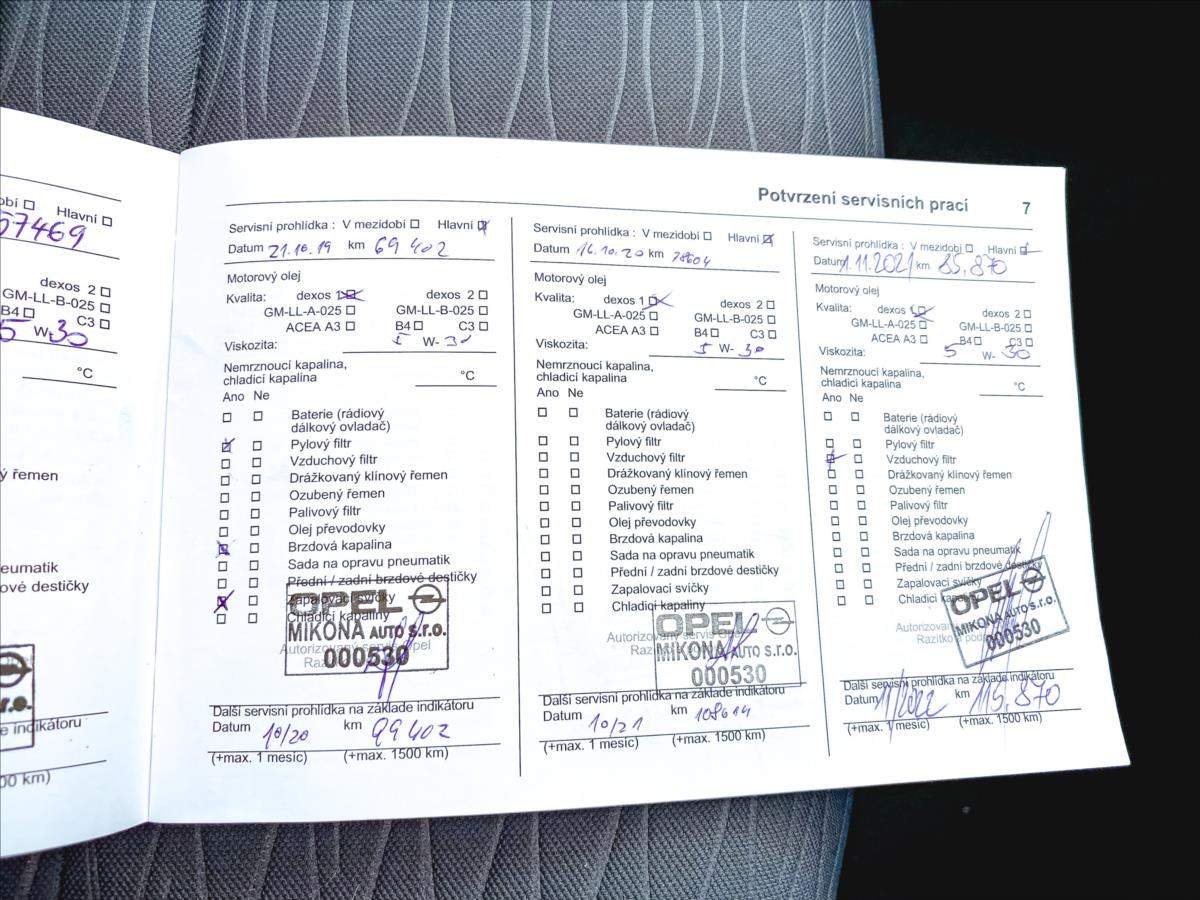 obí ☐ Hlavní ☐
57469
dexos 2 ☐
GM-LL-B-025 ☐
B4 ☐ C3 ☐
5 W-30
°C
ý řemen
eumatik
ové destičky
r.o.
e indikátoru
00 km)
Potvrzení servisních prací 7
Servisní prohlídka : V mezidobí ☐ Hlavní ☒
Datum 21.10.19 km 69 402
Motorový olej
Kvalita: dexos 1 ☒ dexos 2 ☐
GM-LL-A-025 ☐ GM-LL-B-025 ☐
ACEA A3 ☐ B4 ☐ C3 ☐
Viskozita: 5 W- 30
Nemrznoucí kapalina,
chladicí kapalina °C
Ano Ne
☐ ☐ Baterie (rádiový
dálkový ovladač)
☒ ☐ Pylový filtr
☐ ☐ Vzduchový filtr
☐ ☐ Drážkovaný klínový řemen
☐ ☐ Ozubený řemen
☐ ☐ Palivový filtr
☐ ☐ Olej převodovky
☒ ☐ Brzdová kapalina
☐ ☐ Sada na opravu pneumatik
☐ ☐ Přední / zadní brzdové destičky
☒ ☐ Zapalovací svíčky
☐ ☐ Chladicí kapaliny
OPEL
MIKONA AUTO s.r.o.
Autorizovaný servis Opel
000530
Další servisní prohlídka na základe indikátoru
Datum 10/20 km 99402
(+max. 1 mesíc) (+max. 1500 km)
Servisní prohlídka : V mezidobí ☐ Hlavní ☒
Datum 16.10.20 km 78604
Motorový olej
Kvalita: dexos 1 ☒ dexos 2 ☐
GM-LL-A-025 ☐ GM-LL-B-025 ☐
ACEA A3 ☐ B4 ☐ C3 ☐
Viskozita: 5 W- 30
Nemrznoucí kapalina,
chladicí kapalina °C
Ano Ne
☐ ☐ Baterie (rádiový
dálkový ovladač)
☐ ☐ Pylový filtr
☐ ☐ Vzduchový filtr
☐ ☐ Drážkovaný klínový řemen
☐ ☐ Ozubený řemen
☐ ☐ Palivový filtr
☐ ☐ Olej převodovky
☐ ☐ Brzdová kapalina
☐ ☐ Sada na opravu pneumatik
☐ ☐ Přední / zadní brzdové destičky
☐ ☐ Zapalovací svíčky
☐ ☐ Chladicí kapaliny
OPEL
Autorizovaný servis
MIKONA AUTO s.r.o.
000530
Další servisní prohlídka na základe indikátoru
Datum 10/21 km 108614
(+max. 1 mesíc) (+max. 1500 km)
Servisní prohlídka : V mezidobí ☐ Hlavní ☒
Datum 1.11.2021 km 85.870
Motorový olej
Kvalita: dexos 1 ☒ dexos 2 ☐
GM-LL-A-025 ☐ GM-LL-B-025 ☐
ACEA A3 ☐ B4 ☐ C3 ☐
Viskozita: 5 W- 30
Nemrznoucí kapalina,
chladicí kapalina °C
Ano Ne
☐ ☐ Baterie (rádiový
dálkový ovladač)
☐ ☐ Pylový filtr
☒ ☐ Vzduchový filtr
☐ ☐ Drážkovaný klínový řemen
☐ ☐ Ozubený řemen
☐ ☐ Palivový filtr
☐ ☐ Olej převodovky
☐ ☐ Brzdová kapalina
☐ ☐ Sada na opravu pneumatik
☐ ☐ Přední / zadní brzdové destičky
☐ ☐ Zapalovací svíčky
☐ ☐ Chladicí kapaliny
OPEL
MIKONA AUTO s.r.o.
000530
Další servisní prohlídka na základe indikátoru
Datum 11/2022 km 115.870
(+max. 1 mesíc) (+max. 1500 km)